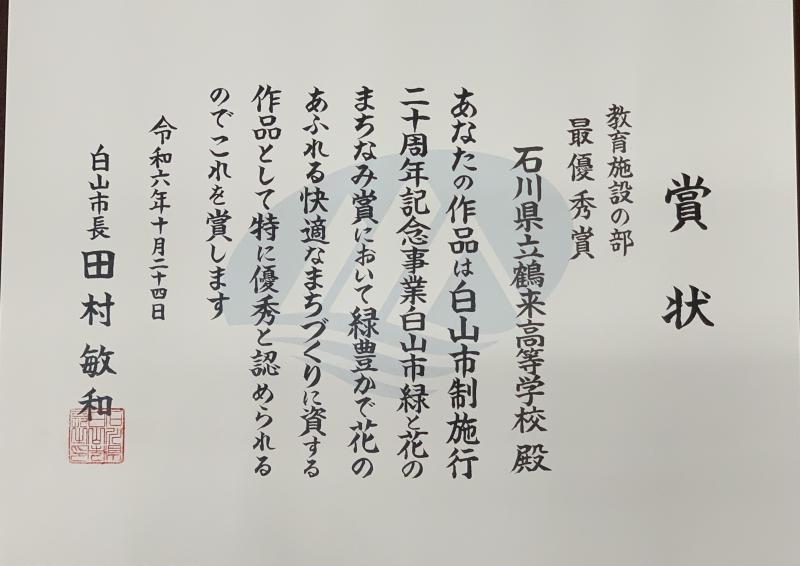 賞状
教育施設の部
最優秀賞
石川県立鶴来高等学校 殿
あなたの作品は白山市制施行
二十周年記念事業白山市緑と花の
まちなみ賞において緑豊かで花の
あふれる快適なまちづくりに資する
作品として特に優秀と認められる
のでこれを賞します
令和六年十月二十四日
白山市長 田村敏和